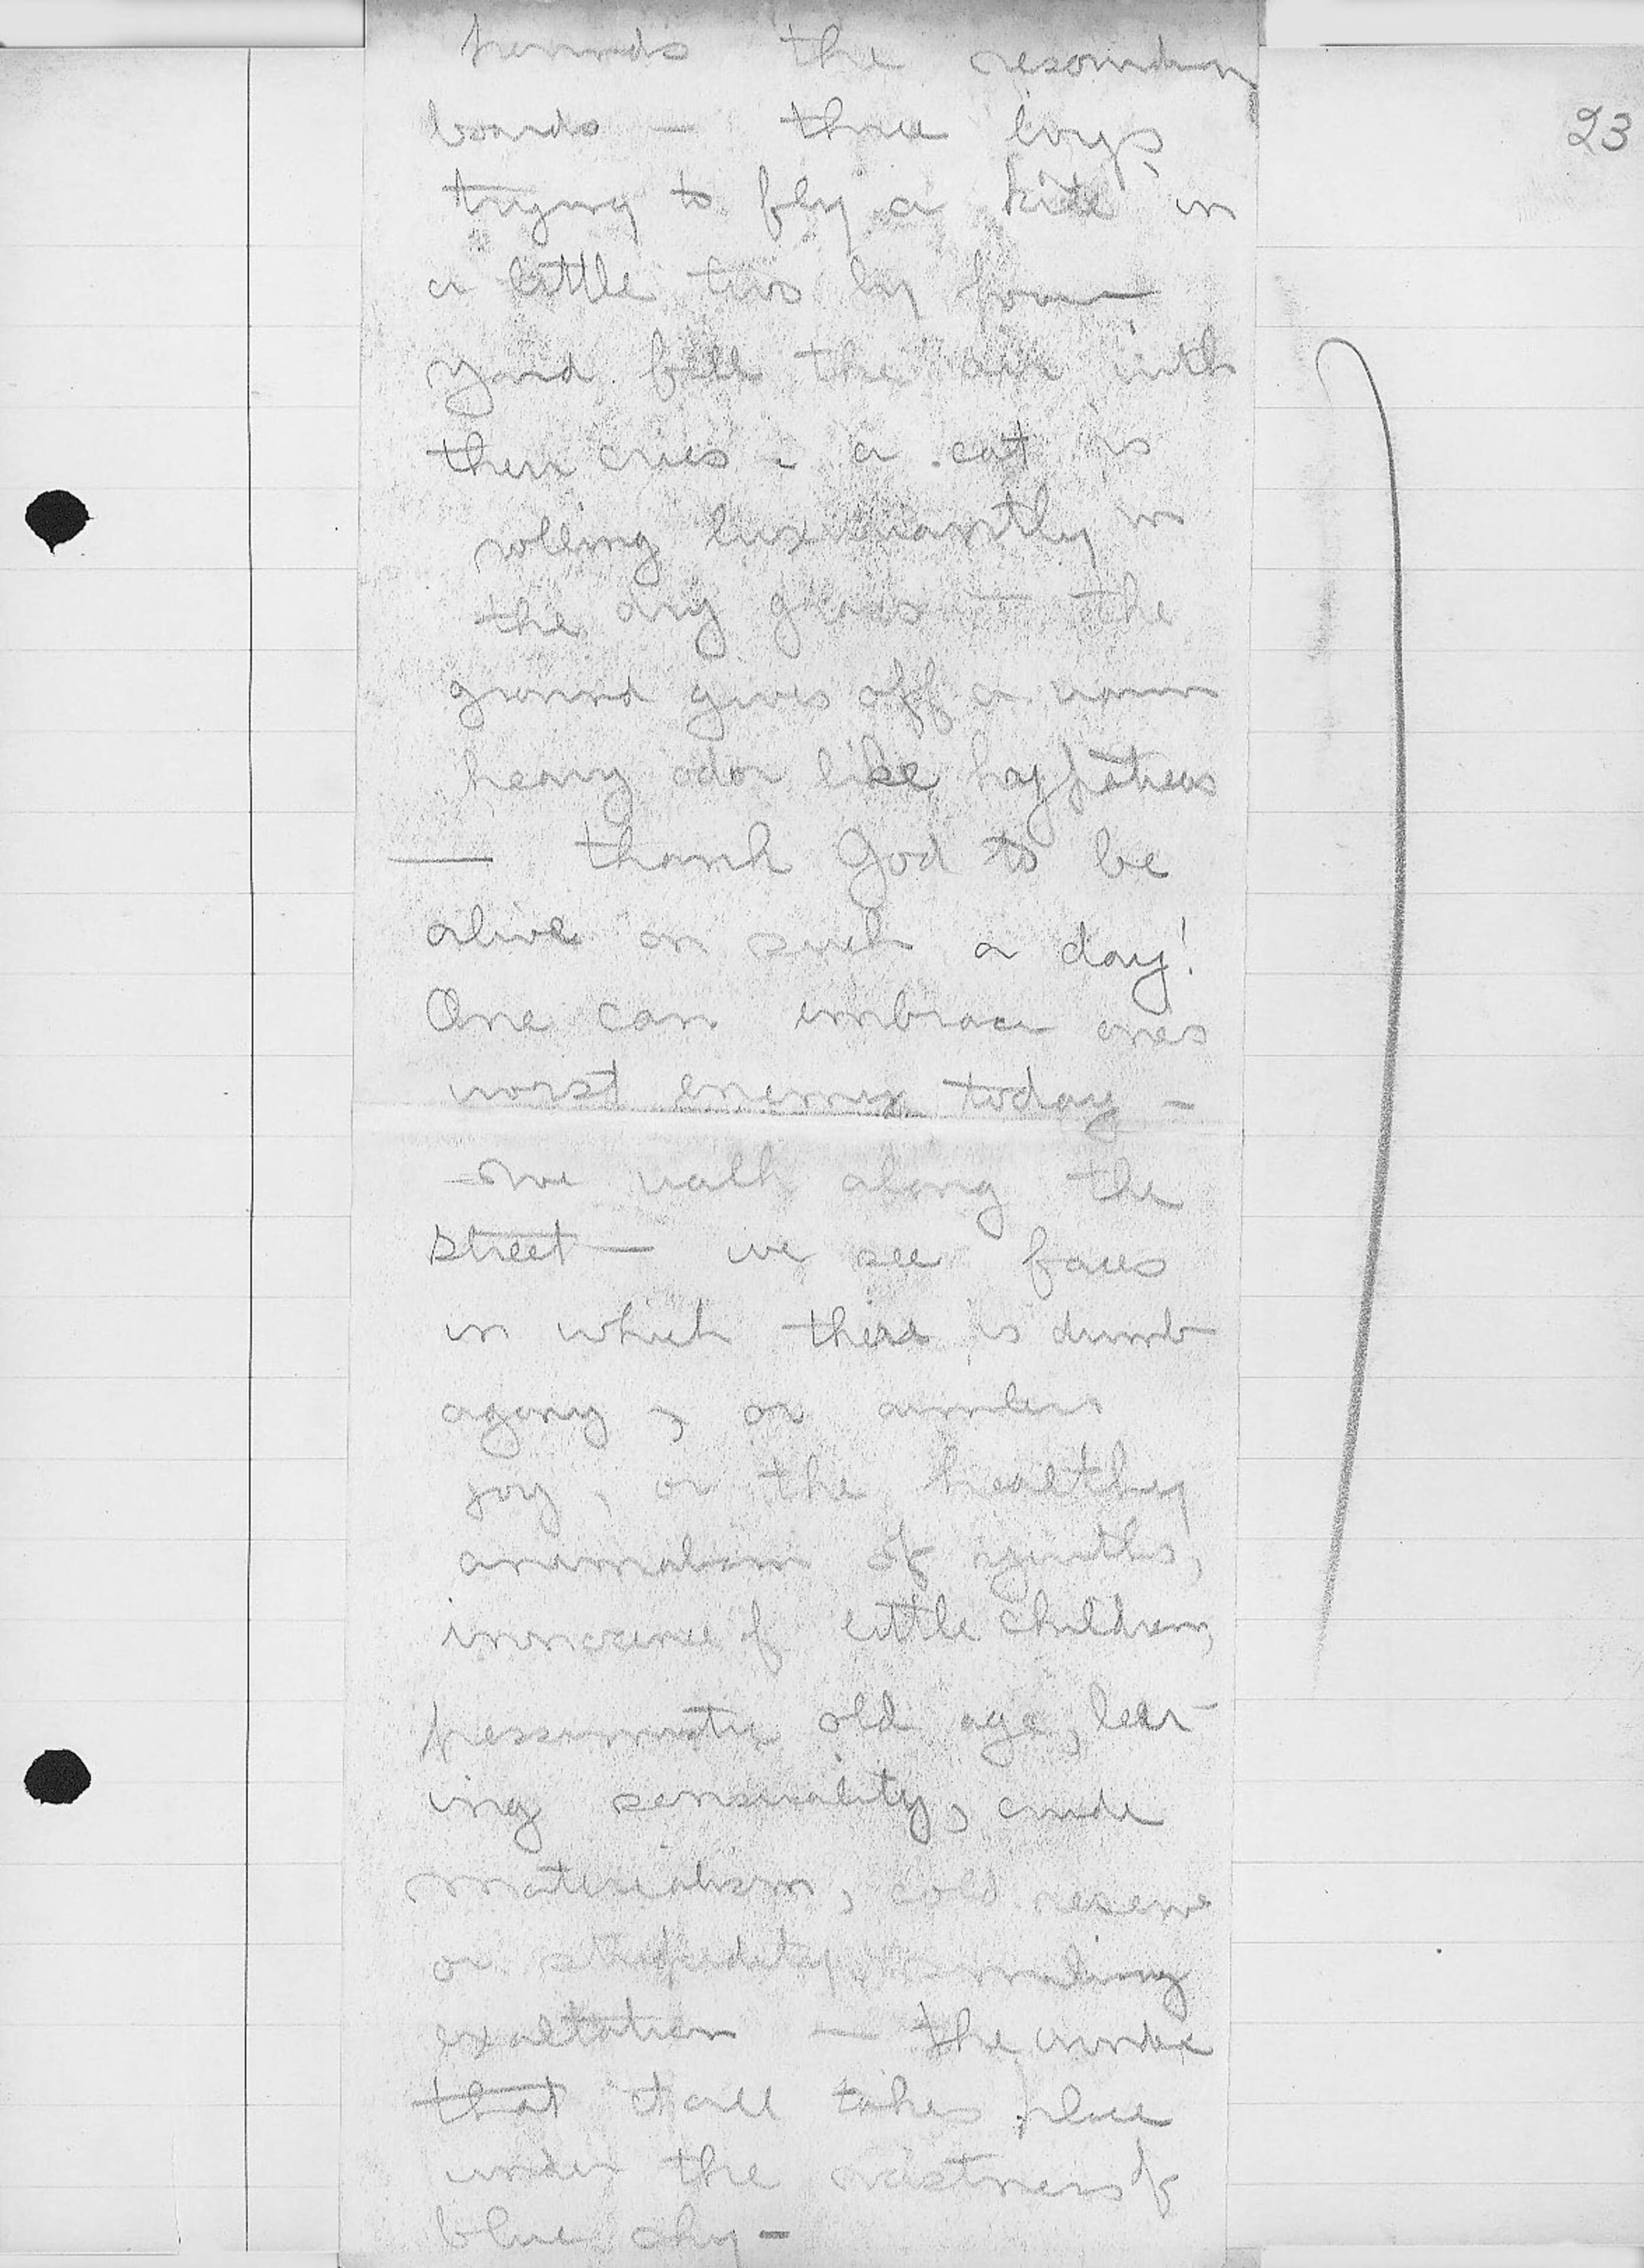 pounds the resounding
boards — three boys
23
trying to fly a kite in
a little two by four
yard fill the air with
their cries - a cat is
rolling luxuriantly in
the dry grass the
ground gives off a warm
heavy odor like hay
— thank God to be
alive on such a day!
One can embrace ones
worst enemy today -
- we walk along the
street — we see faces
in which there is dumb
agony, or aimless
joy, or the healthy
animalism of youths,
innocence of little children,
pessimistic old age, leer-
ing sensuality, crude
materialism, cold reserve
or stupidity smiling
exaltation — the wonder
that it all takes place
under the vastness of
blue sky -